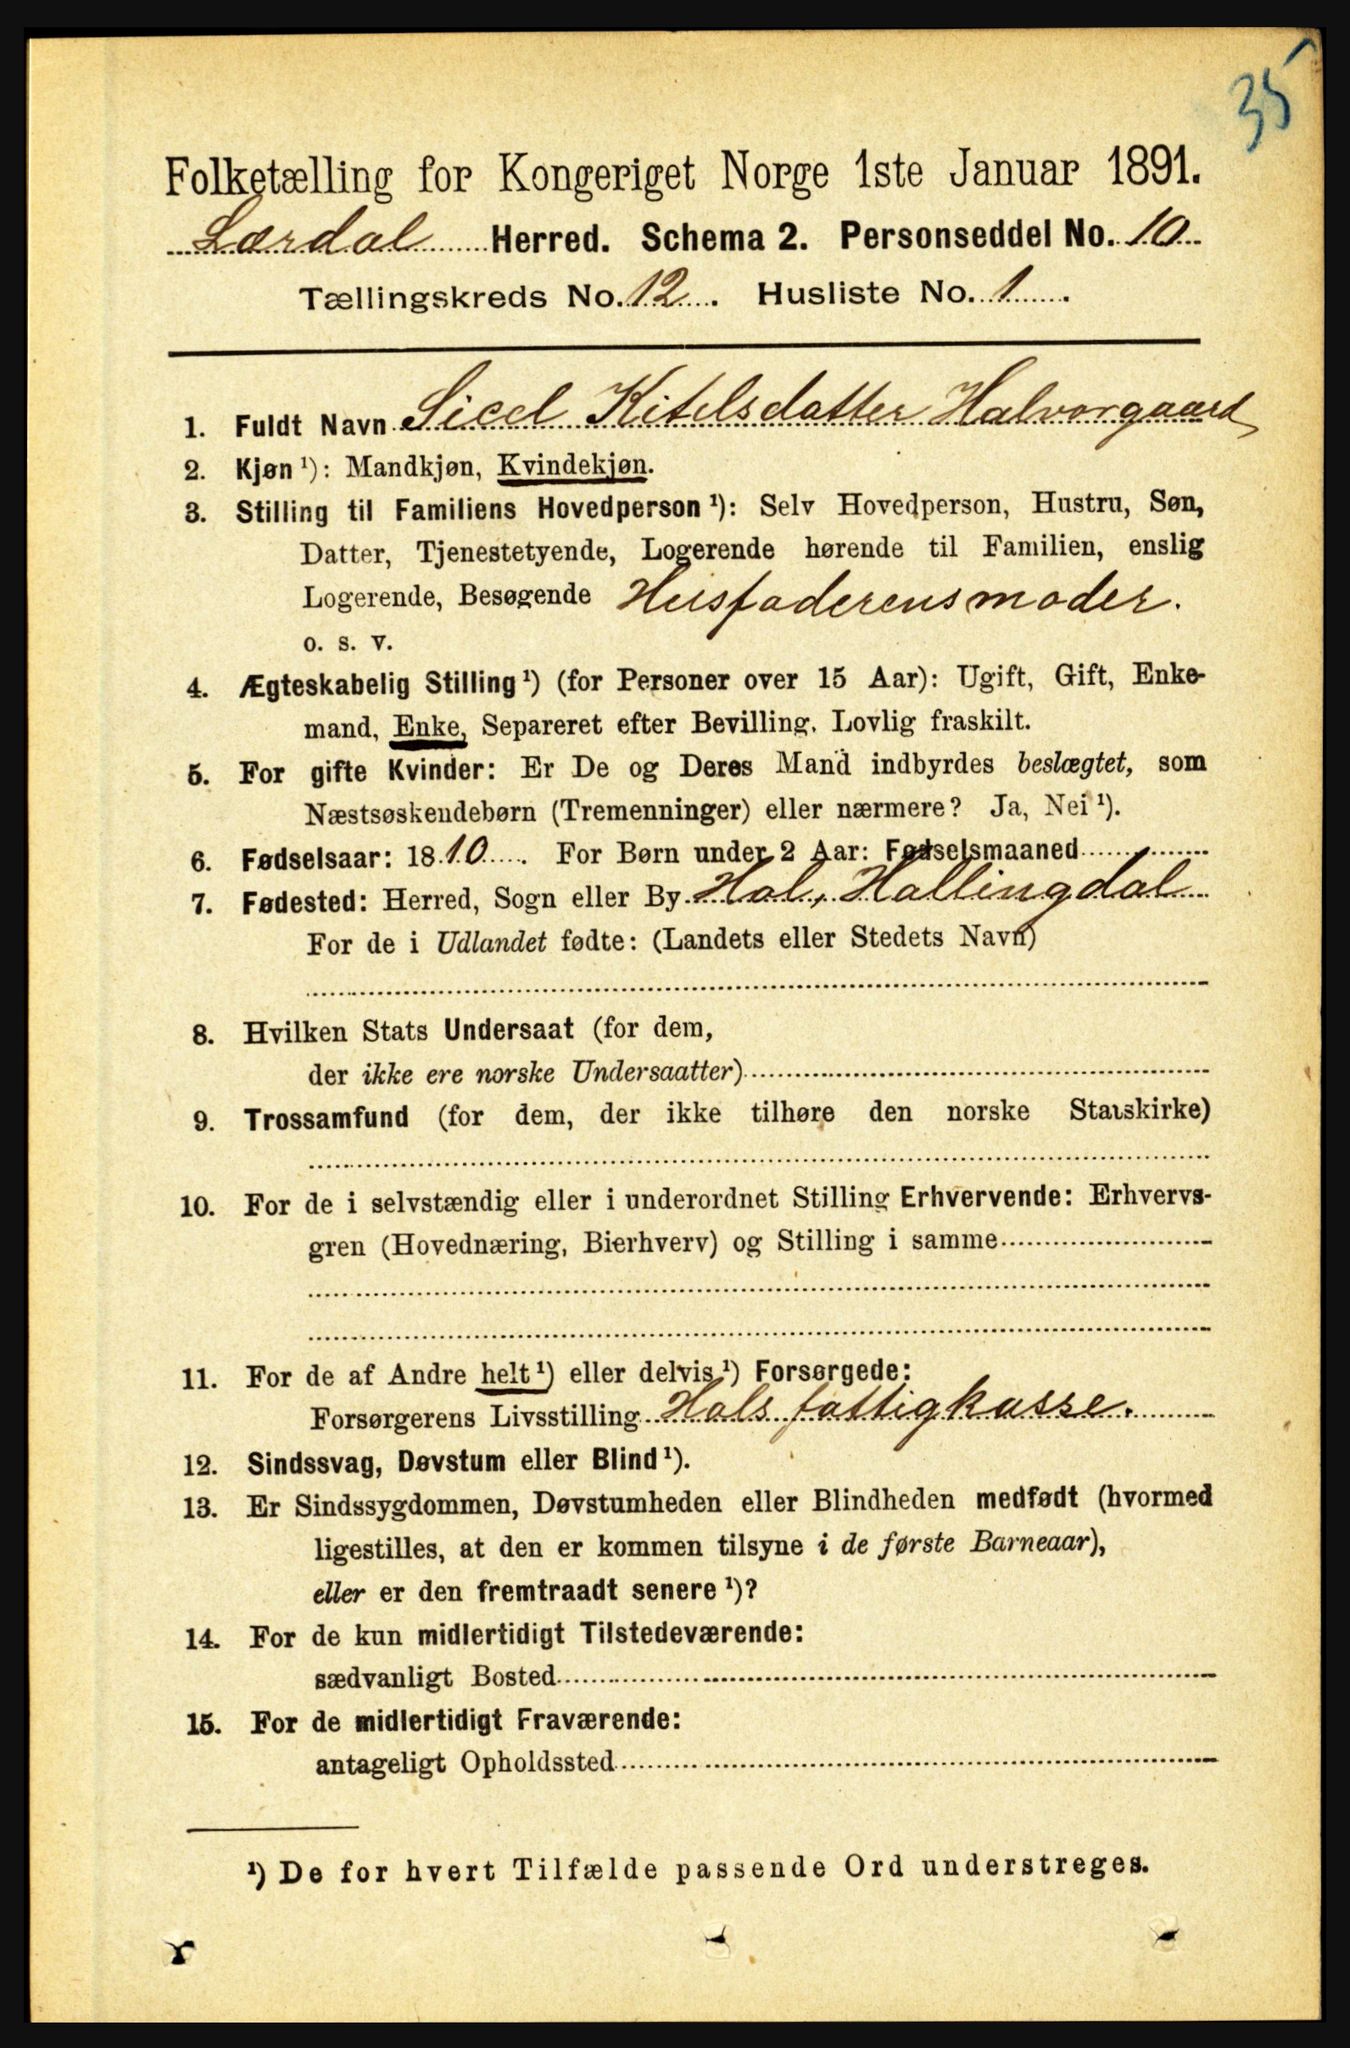 35
Folketælling for Kongeriget Norge 1ste Januar 1891.
Lærdal Herred. Schema 2. Personseddel No. 10
Tællingskreds No. 12. Husliste No. 1.
1. Fuldt Navn Sicel Kitelsdatter Halvorgaard
2. Kjøn ¹): Mandkjøn, Kvindekjøn.
3. Stilling til Familiens Hovedperson ¹): Selv Hovedperson, Hustru, Søn,
Datter, Tjenestetyende, Logerende hørende til Familien, enslig
Logerende, Besøgende Husfaderens moder.
o. s. v.
4. Ægteskabelig Stilling ¹) (for Personer over 15 Aar): Ugift, Gift, Enke-
mand, Enke, Separeret efter Bevilling. Lovlig fraskilt.
5. For gifte Kvinder: Er De og Deres Mand indbyrdes beslægtet, som
Næstsøskendebørn (Tremenninger) eller nærmere? Ja, Nei ¹).
6. Fødselsaar: 1810. For Børn under 2 Aar: Fødselsmaaned
7. Fødested: Herred, Sogn eller By Hol, Hallingdal
For de i Udlandet fødte: (Landets eller Stedets Navn)
8. Hvilken Stats Undersaat (for dem,
der ikke ere norske Undersaatter)
9. Trossamfund (for dem, der ikke tilhøre den norske Statskirke)
10. For de i selvstændig eller i underordnet Stilling Erhvervende: Erhvervs-
gren (Hovednæring, Bierhverv) og Stilling i samme
11. For de af Andre helt ¹) eller delvis ¹) Forsørgede:
Forsørgerens Livsstilling Hols fattigkasse.
12. Sindssvag, Døvstum eller Blind ¹).
13. Er Sindssygdommen, Døvstumheden eller Blindheden medfødt (hvormed
ligestilles, at den er kommen tilsyne i de første Barneaar),
eller er den fremtraadt senere ¹)?
14. For de kun midlertidigt Tilstedeværende:
sædvanligt Bosted
15. For de midlertidigt Fraværende:
antageligt Opholdssted
¹) De for hvert Tilfælde passende Ord understreges.